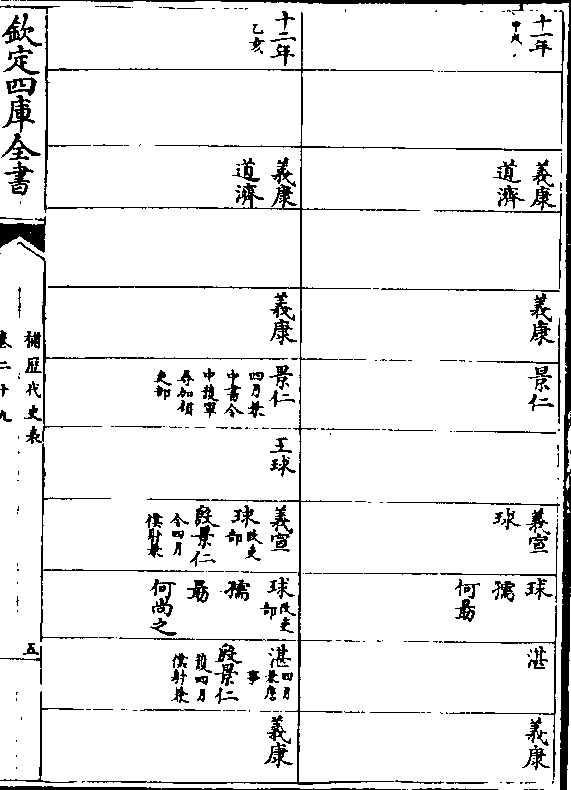 十一年甲戌
義康
道濟
義康
景仁
義宣
球
球
孺
何勗
湛
義康
十二年乙亥
義康
道濟
義康
景仁四月兼
中書令
中護軍
尋加領
吏部
王球
義宣
球改吏
部
殷景仁
令四月
僕射兼
球改吏
部
孺
勗
何尚之
湛四月
兼詹
事
殷景仁
護四月
僕射兼
義康
欽定四庫全書
補歷代史表
卷二十九
五